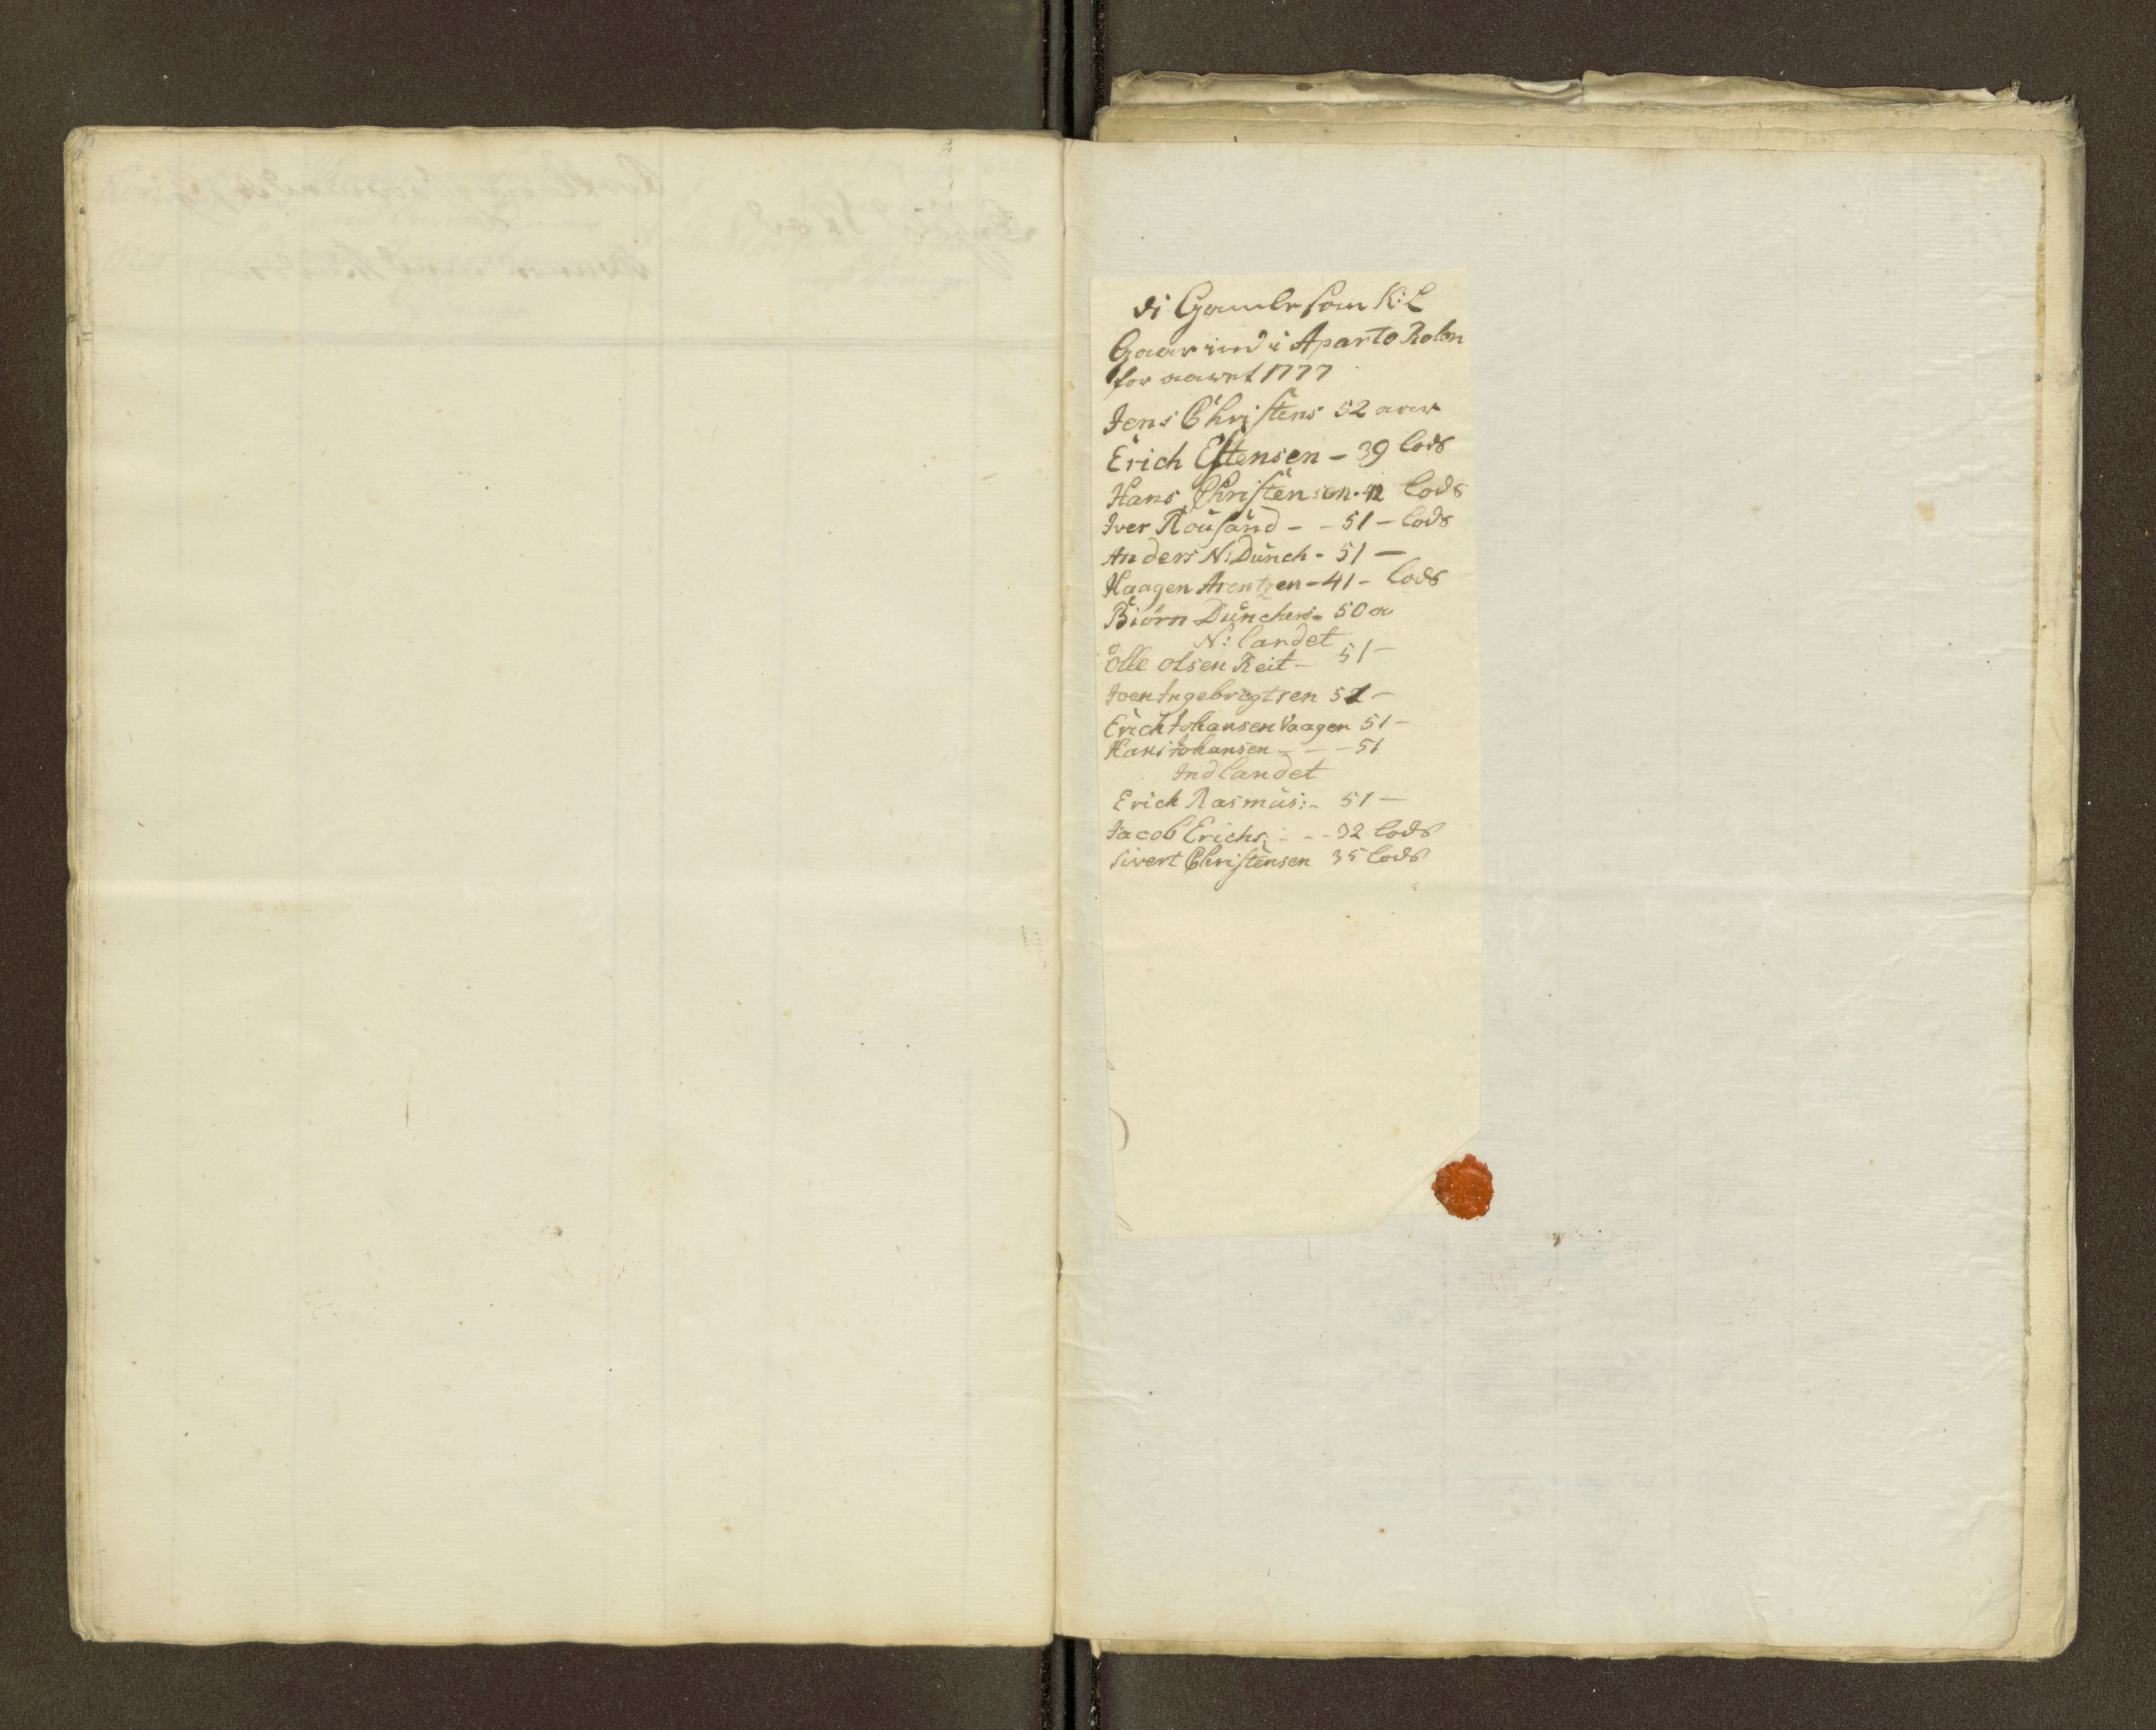 di Gamle som K: L
Gaar ind i Aparte Rolen
for aaret 1777
Jens Christens 52 aar
Erich Estensen - 39 lods
Hans Christensen - 42 Lods
Iver Rousand - - 51 - lods
Anders N: Dunch - 51 -
Haagen Arentzen - 41 - lods
Biörn Dunchens - 50 aa
N: landet
Olle Olsen Reit - 51 -
Iven Ingebrigtsen 51 -
Erich Johansen Vaagen 51 -
Hans Johansen - - - 51
Indlandet
Erich Rasmus: - 51 -
Jacob Erichs: - - - 32 lods
Sivert Christensen 35 lods